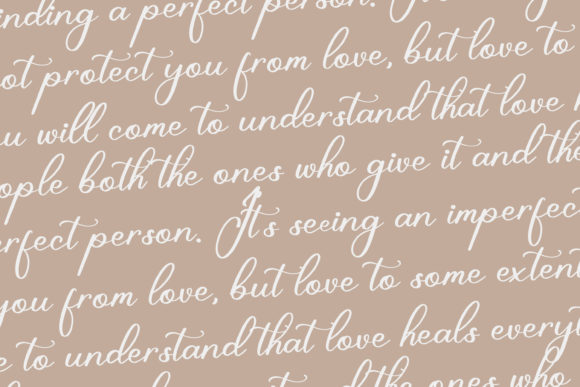 inding a perfect person.
ot protect you from love, but love to
u will come to understand that love
ople both the ones who give it and the
erfect person. It's seeing an imperfect
you from love, but love to some extent
e to understand that love heals everyt
the ones who